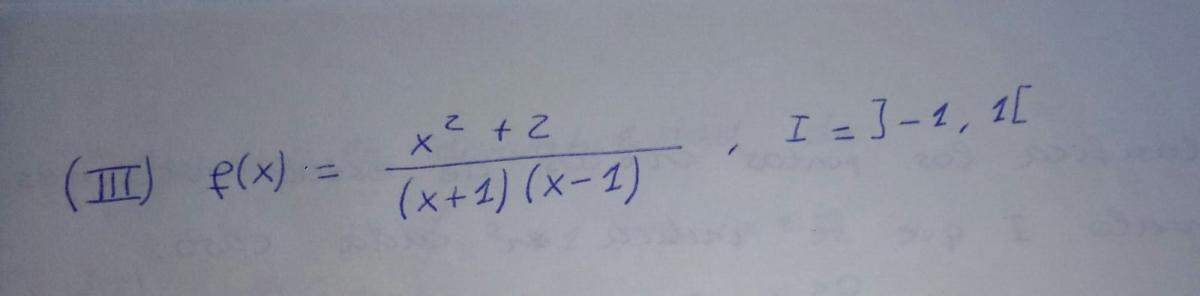 (III) f(x) := x² + 2 / (x+1)(x-1) , I = ]-1, 1[